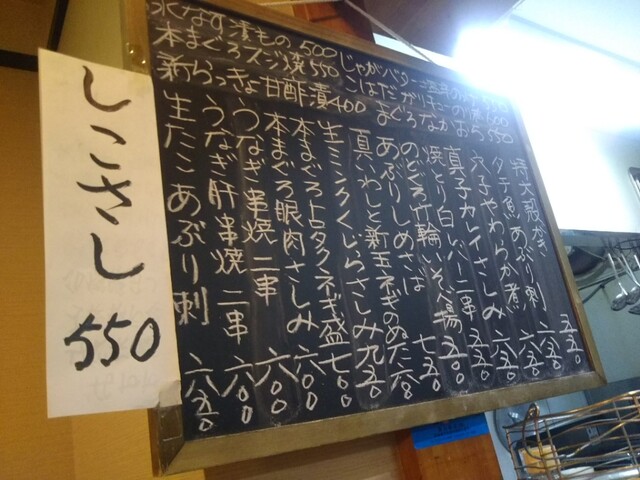 水なす漬もの 500 じゃがバター
本まぐろスジ焼 550 こはだガリキュー
新らっきょ甘酢漬 400 まぐろなかおち 550
特大殻かき 五五〇
タチ魚あぶり刺 六五〇
穴子やわらか煮 六五〇
真子カレイさしみ 五五〇
焼とり白レバー二串
のどぐろ竹輪いそべ揚 七五〇
あぶりしめさば
真いわしと新玉ネギのぬた 六八〇
生ミンクくじらさしみ 九五〇
本まぐろトロタクネギ盛 七〇〇
本まぐろ眼肉さしみ 六〇〇
うなぎ串焼 二串 六〇〇
うなぎ肝串焼 二串 六〇〇
生たこあぶり刺 六八〇
しこさし 550